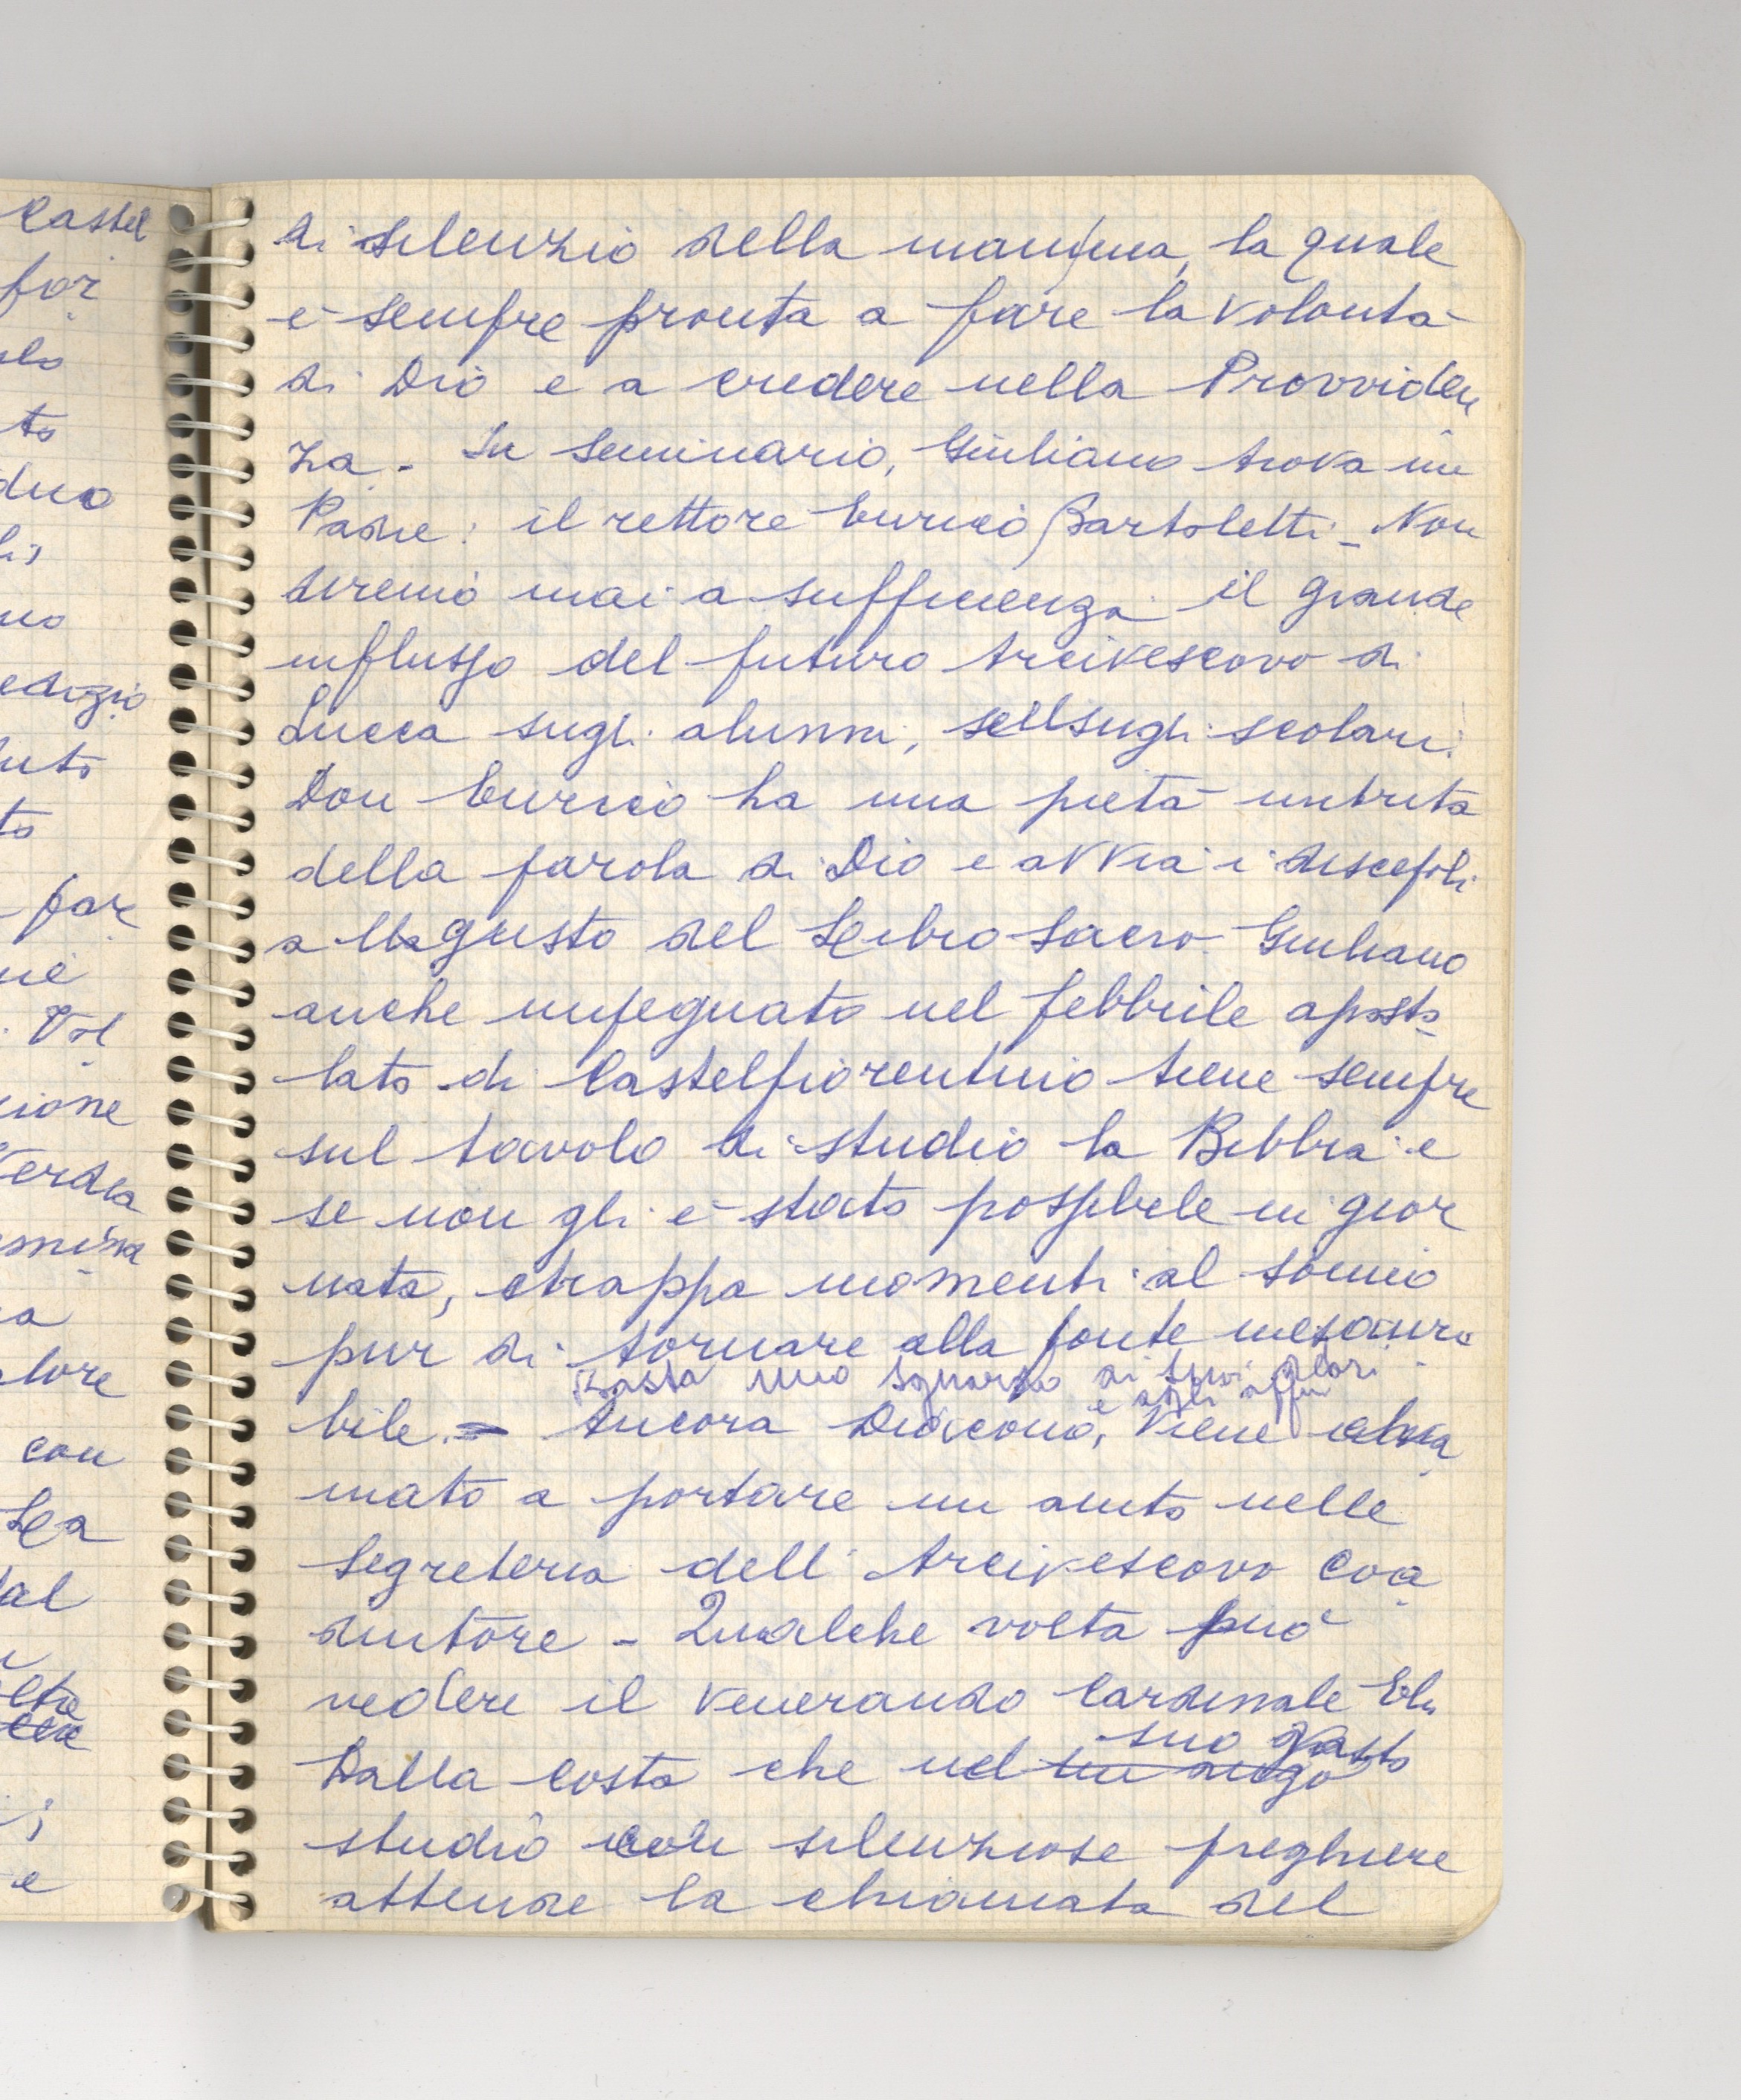 Castel
di silenzio della mamma, la quale
è sempre pronta a fare la volontà
di Dio e a credere nella Provviden
za. In Seminario, Giuliano trova un
Padre: il rettore Enrico Bartoletti. Non
diremo mai a sufficienza il grande
influsso del futuro Arcivescovo di
Lucca sugli alunni, sugli scolari.
Don Enrico ha una pietà nutrita
della parola di Dio e avvia i discepoli
al gusto del Libro Sacro. Giuliano
anche impegnato nel febbrile aposto
lato di Castelfiorentino tiene sempre
sul tavolo di studio la Bibbia e
se non gli è stato possibile in gior
nata, strappa momenti al sonno
pur di tornare alla fonte inesauri
Basta uno sguardo ai suoi
e agli
bile. Ancora Diacono, viene chia
mato a portare un aiuto nelle
segreteria dell'Arcivescovo Coa
diutore - Qualche volta può
vedere il venerando Cardinale Elia
suo vasto
Dalla Costa che nel
studio con silenziose preghiere
attende la chiamata del